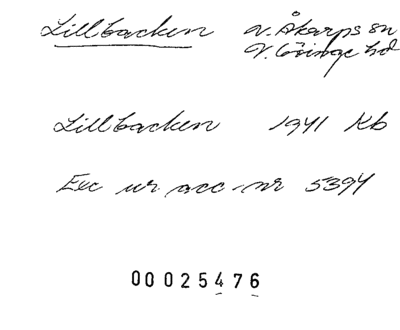 Lillbacken V. Åkarps sn
V. Göinge hd
Lillbacken 1941 Kb
Exc ur acc-nr 5394
00025476